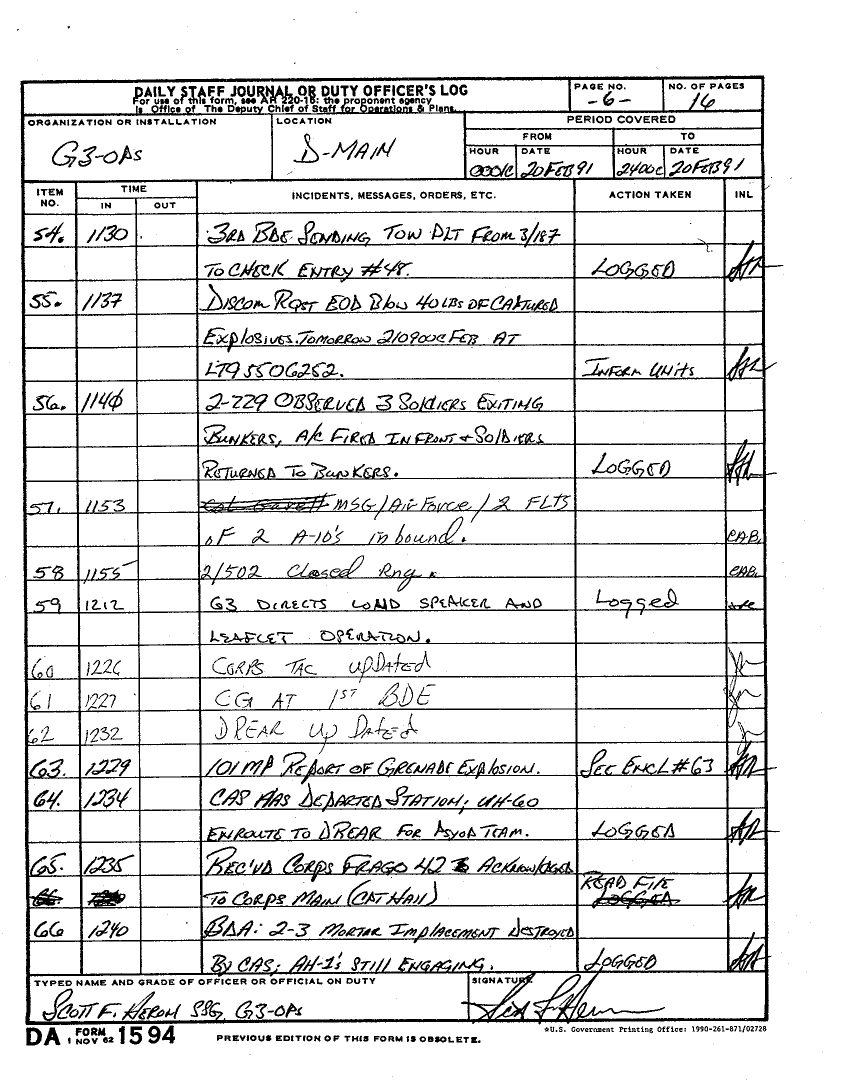 DAILY STAFF JOURNAL OR DUTY OFFICER'S LOG
For use of this form, see AR 220-15: the proponent agency
is Office of The Deputy Chief of Staff for Operations & Plans.
PAGE NO.
-6-
NO. OF PAGES
16
ORGANIZATION OR INSTALLATION
G3-OPS
LOCATION
D-MAIN
PERIOD COVERED
FROM
TO
HOUR DATE HOUR DATE
0001C 20FEB91 2400C 20FEB91
ITEM NO. TIME IN OUT INCIDENTS, MESSAGES, ORDERS, ETC. ACTION TAKEN INL
54. 1130 3RD BDE SENDING TOW PLT FROM 3/187
TO CHECK ENTRY #48. LOGGED
55. 1137 DISCOM RQST EOD BLOW 40 LBS OF CAPTURED
EXPLOSIVES. TOMORROW 210900C FEB AT
LT95506252. INFORM UNITS
56. 1140 2-229 OBSERVED 3 SOLDIERS EXITING
BUNKERS, A/C FIRED IN FRONT & SOLDIERS
RETURNED TO BUNKERS. LOGGED
57. 1153 MSG/Air Force/2 FLTS
OF 2 A-10's inbound. CAB.
58 1155 2/502 Closed Rng. CAB.
59 1212 G3 DIRECTS LOUD SPEAKER AND Logged
LEAFLET OPERATION.
60 1226 CORPS TAC UPDATED
61 1227 CG AT 1ST BDE
62 1232 DREAR UPDATED
63. 1229 101 MP REPORT OF GRENADE EXPLOSION. SEE ENCL #63
64. 1234 CAS HAS DEPARTED STATION; UH-60
ENROUTE TO DREAR FOR PSYOP TEAM. LOGGED
65. 1235 REC'VD CORPS FRAGO 42 ACKNOWLEDGED
TO CORPS MAIN (CPT HALL) READ FILE
LOGGED
66 1240 BDA: 2-3 MORTAR IMPLACEMENT DESTROYED
BY CAS; AH-1's STILL ENGAGING. LOGGED
TYPED NAME AND GRADE OF OFFICER OR OFFICIAL ON DUTY
SCOTT F. HERON SSG, G3-OPS
SIGNATURE
DA FORM 1 NOV 62 1594
PREVIOUS EDITION OF THIS FORM IS OBSOLETE.
*U.S. Government Printing Office: 1990-261-871/02728